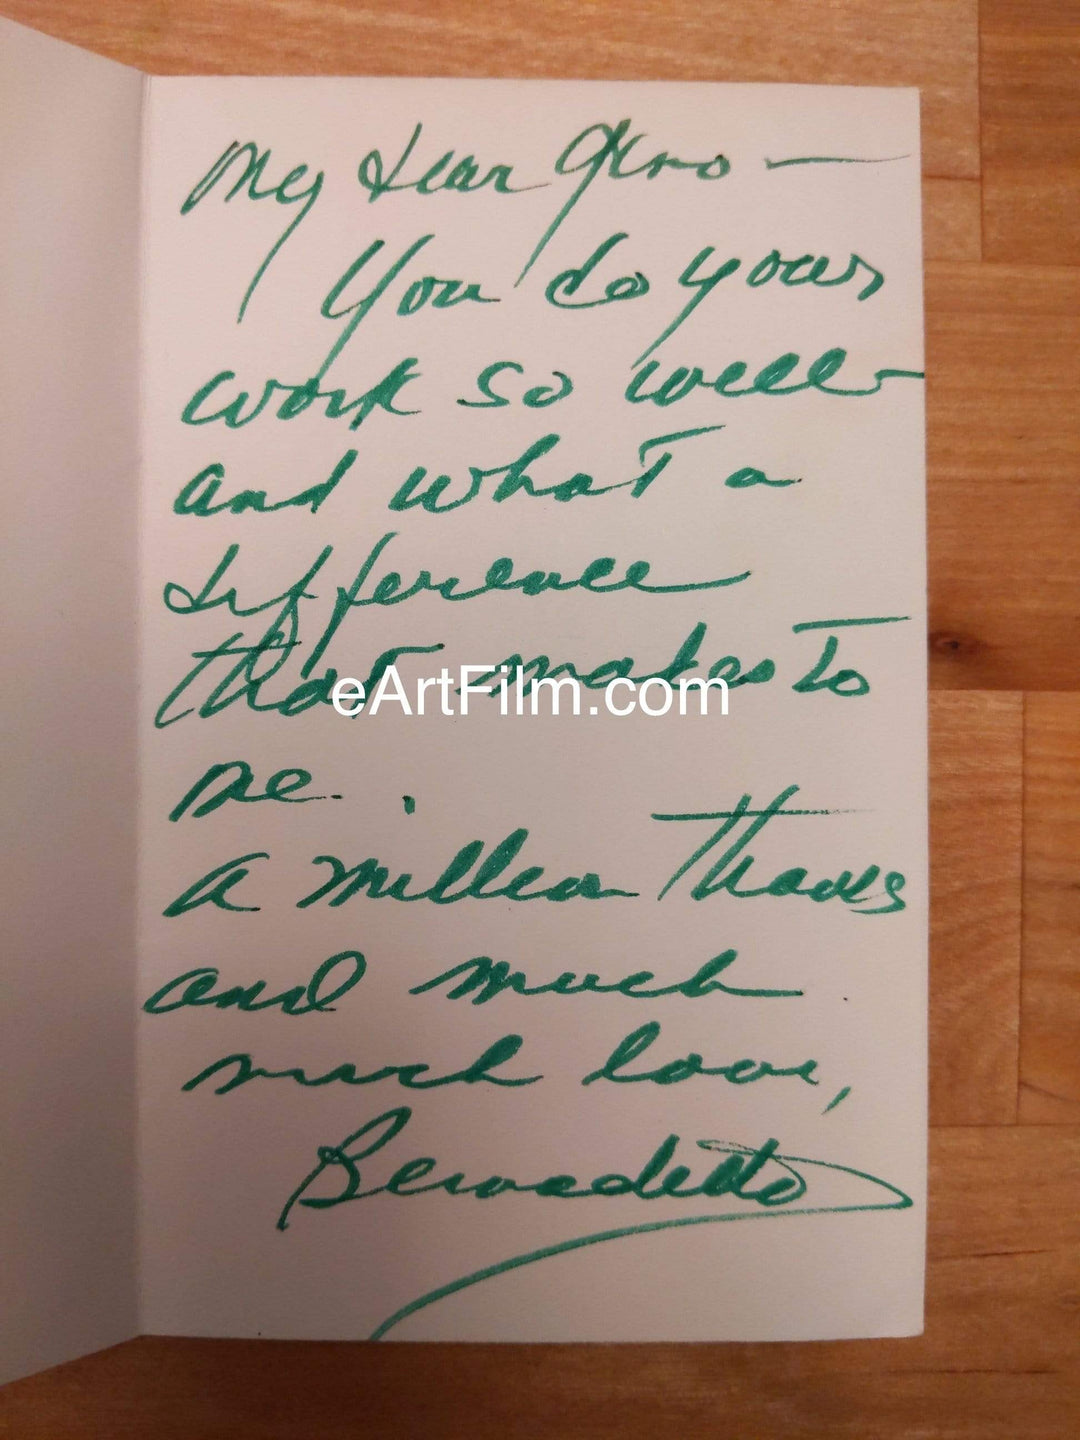 My dear Geno —
You do your
work so well –
and what a
difference
that makes to
me..
eArtFilm.com
A million Thanks
and much
much love,
Benedetto